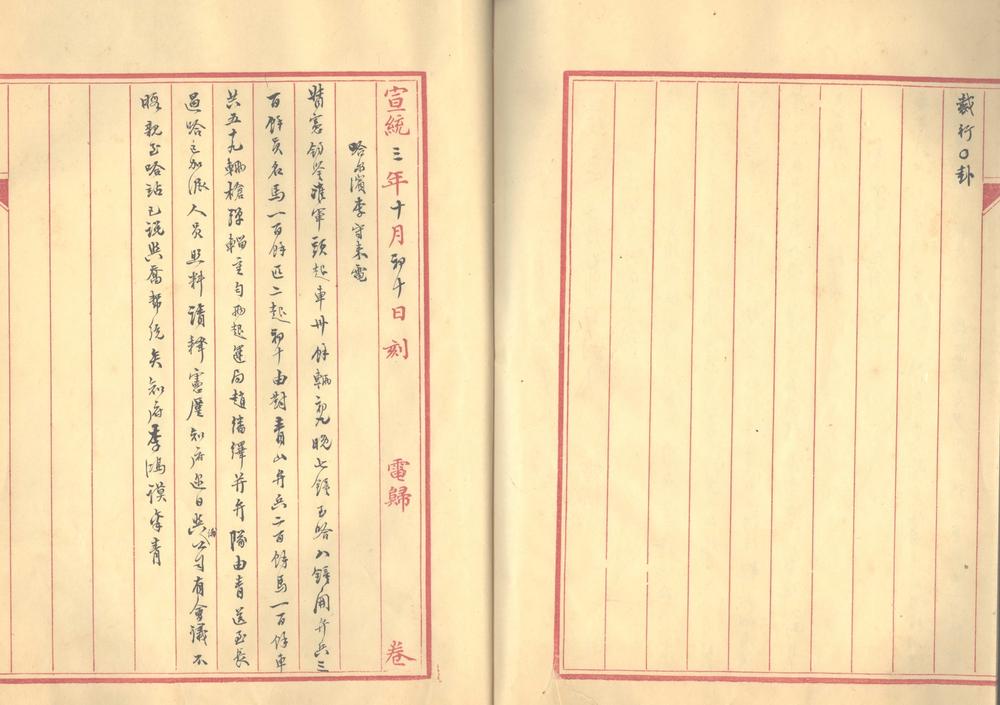 裁行〇卦
宣統三年十月初十日刻 電歸 卷
哈尔濱李守來電
督憲鈞鑒淮軍頭起車卅餘輛初九晚七鐘至哈八鐘開弁兵三
百餘員名馬一百餘匹二起初十由對青山弁兵二百餘馬一百餘車
共五十九輛槍彈輜重勻拘起運局趙倩繹并弁隊由青送至長
過哈已加派人員照料請釋憲厪知府近日與滿公司有會議不
暇親至哈站已說與喬幫統矣知府李鴻謨稟青